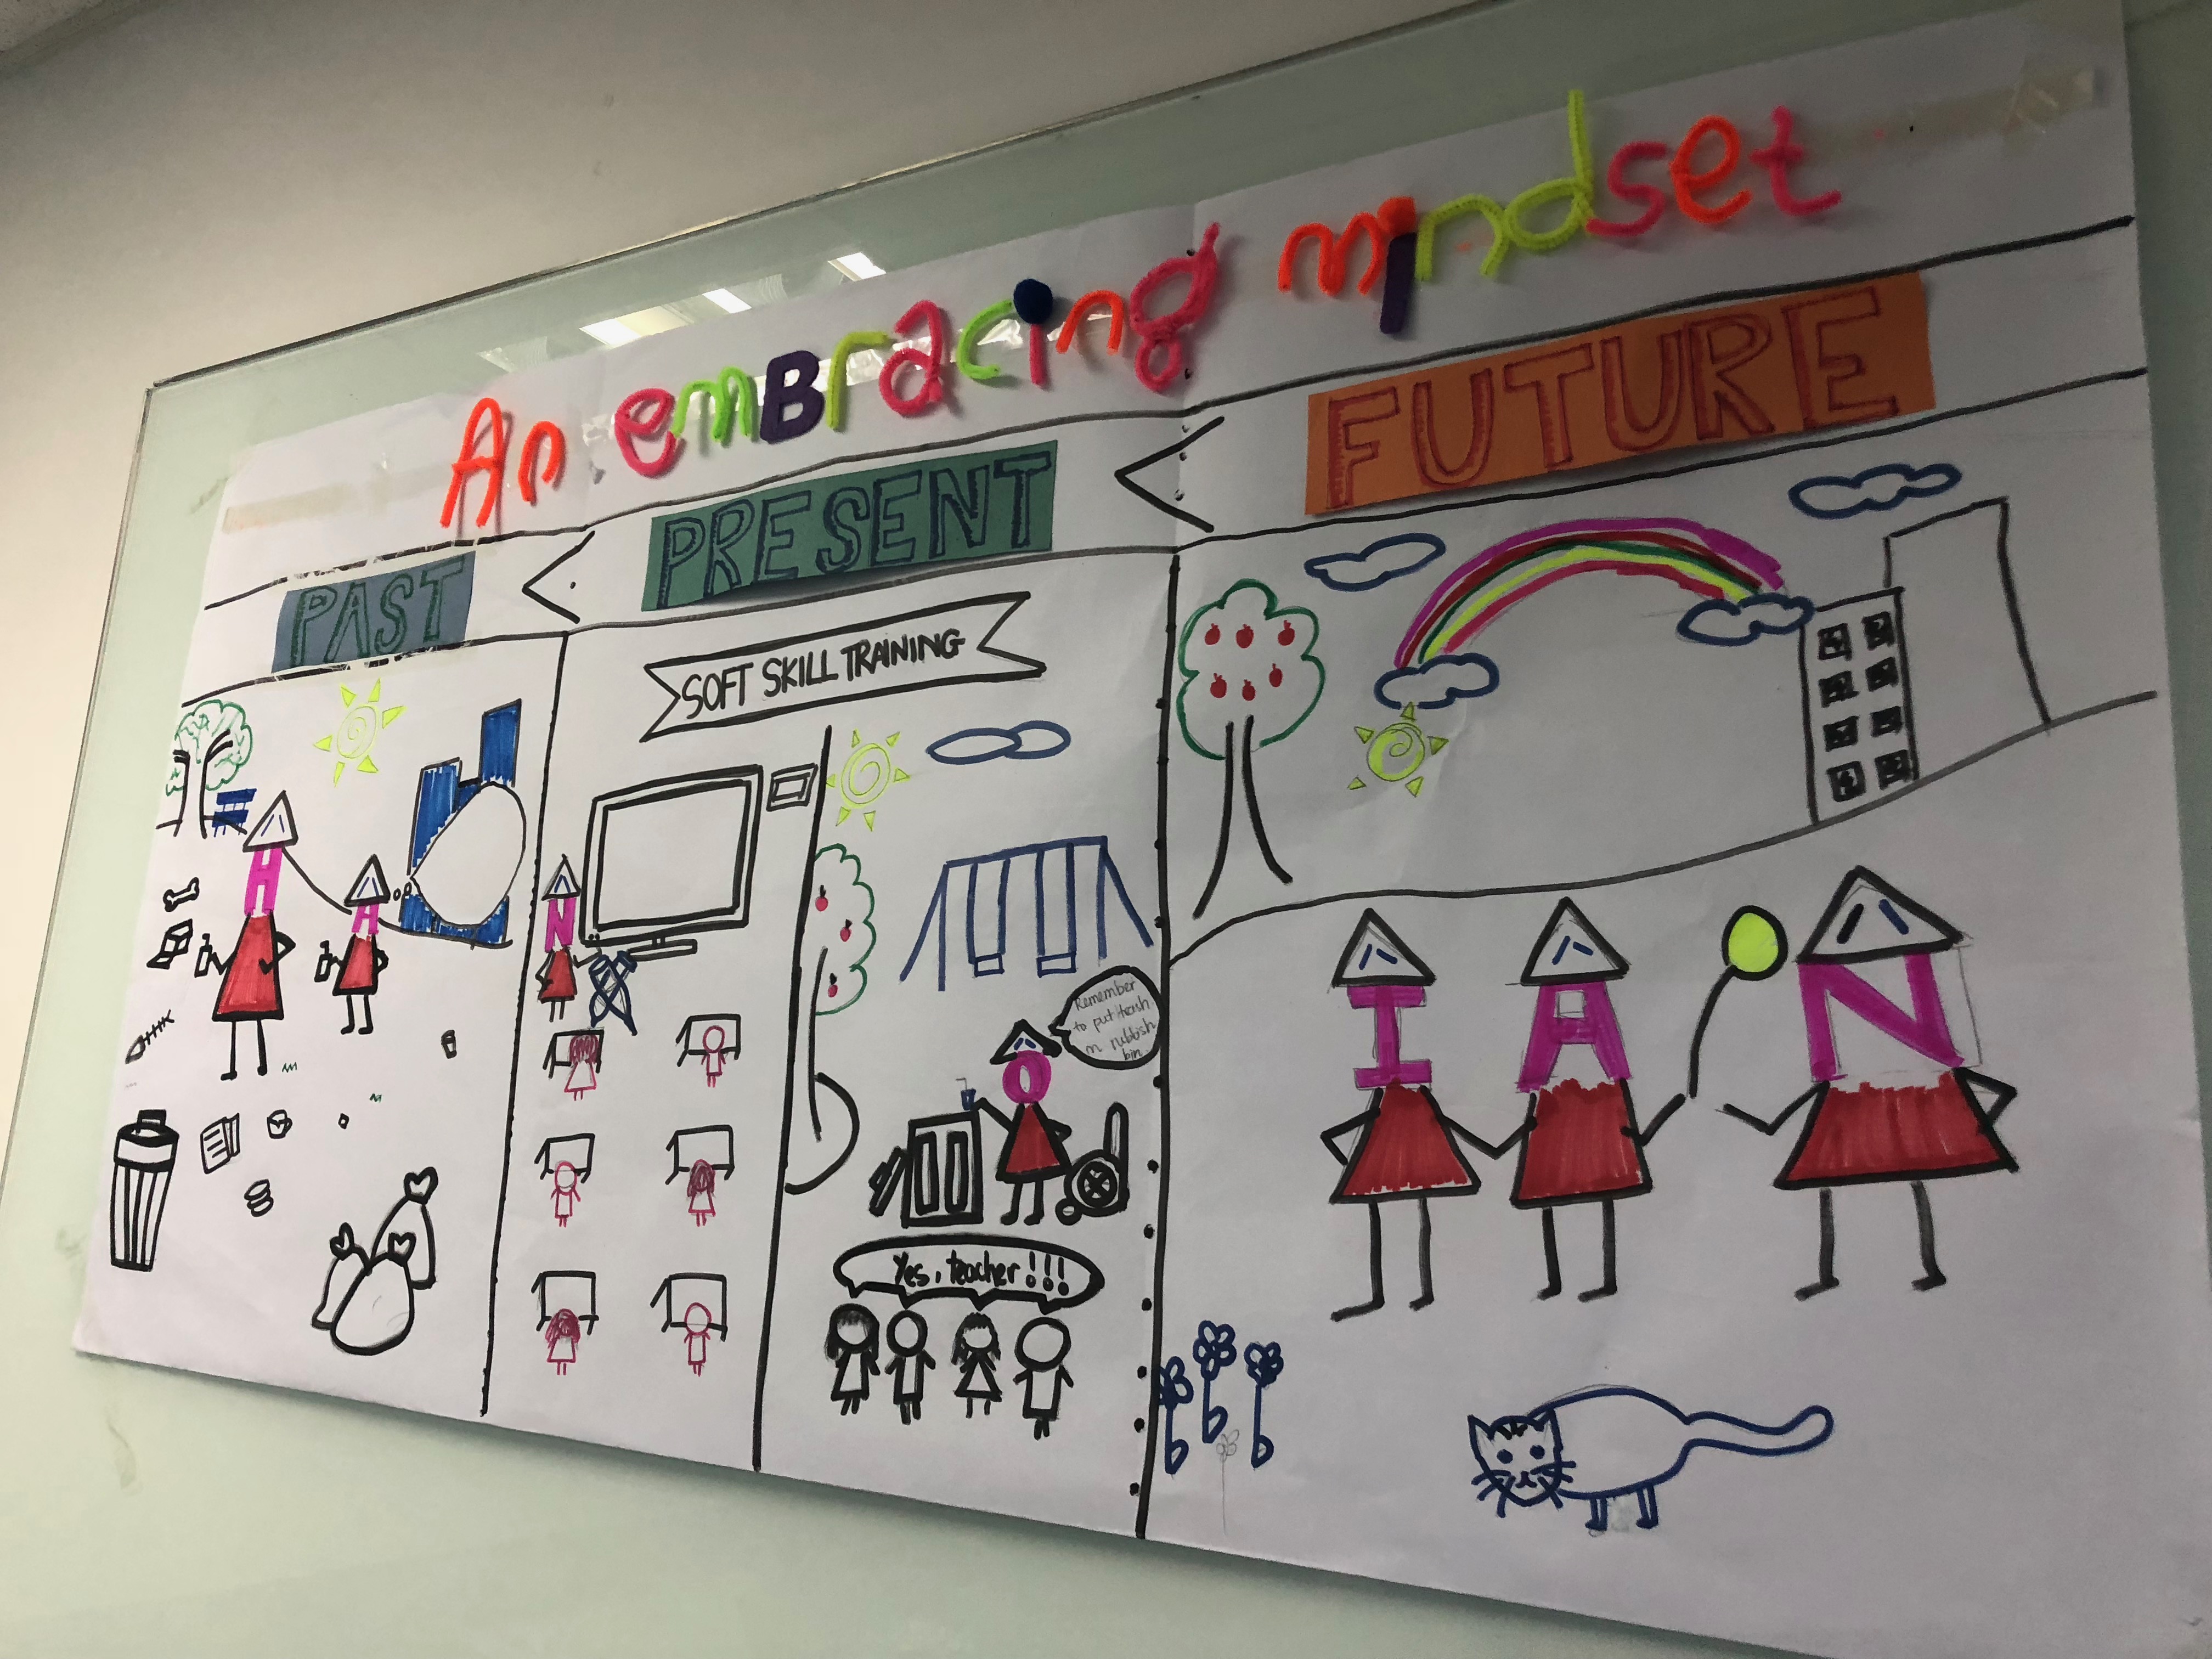 An emBracing mindset
PAST
PRESENT
FUTURE
SOFT SKILL TRAINING
H
A
N
O
Remember
to put trash
in rubbish
bin
Yes, teacher!!!
I
A
N